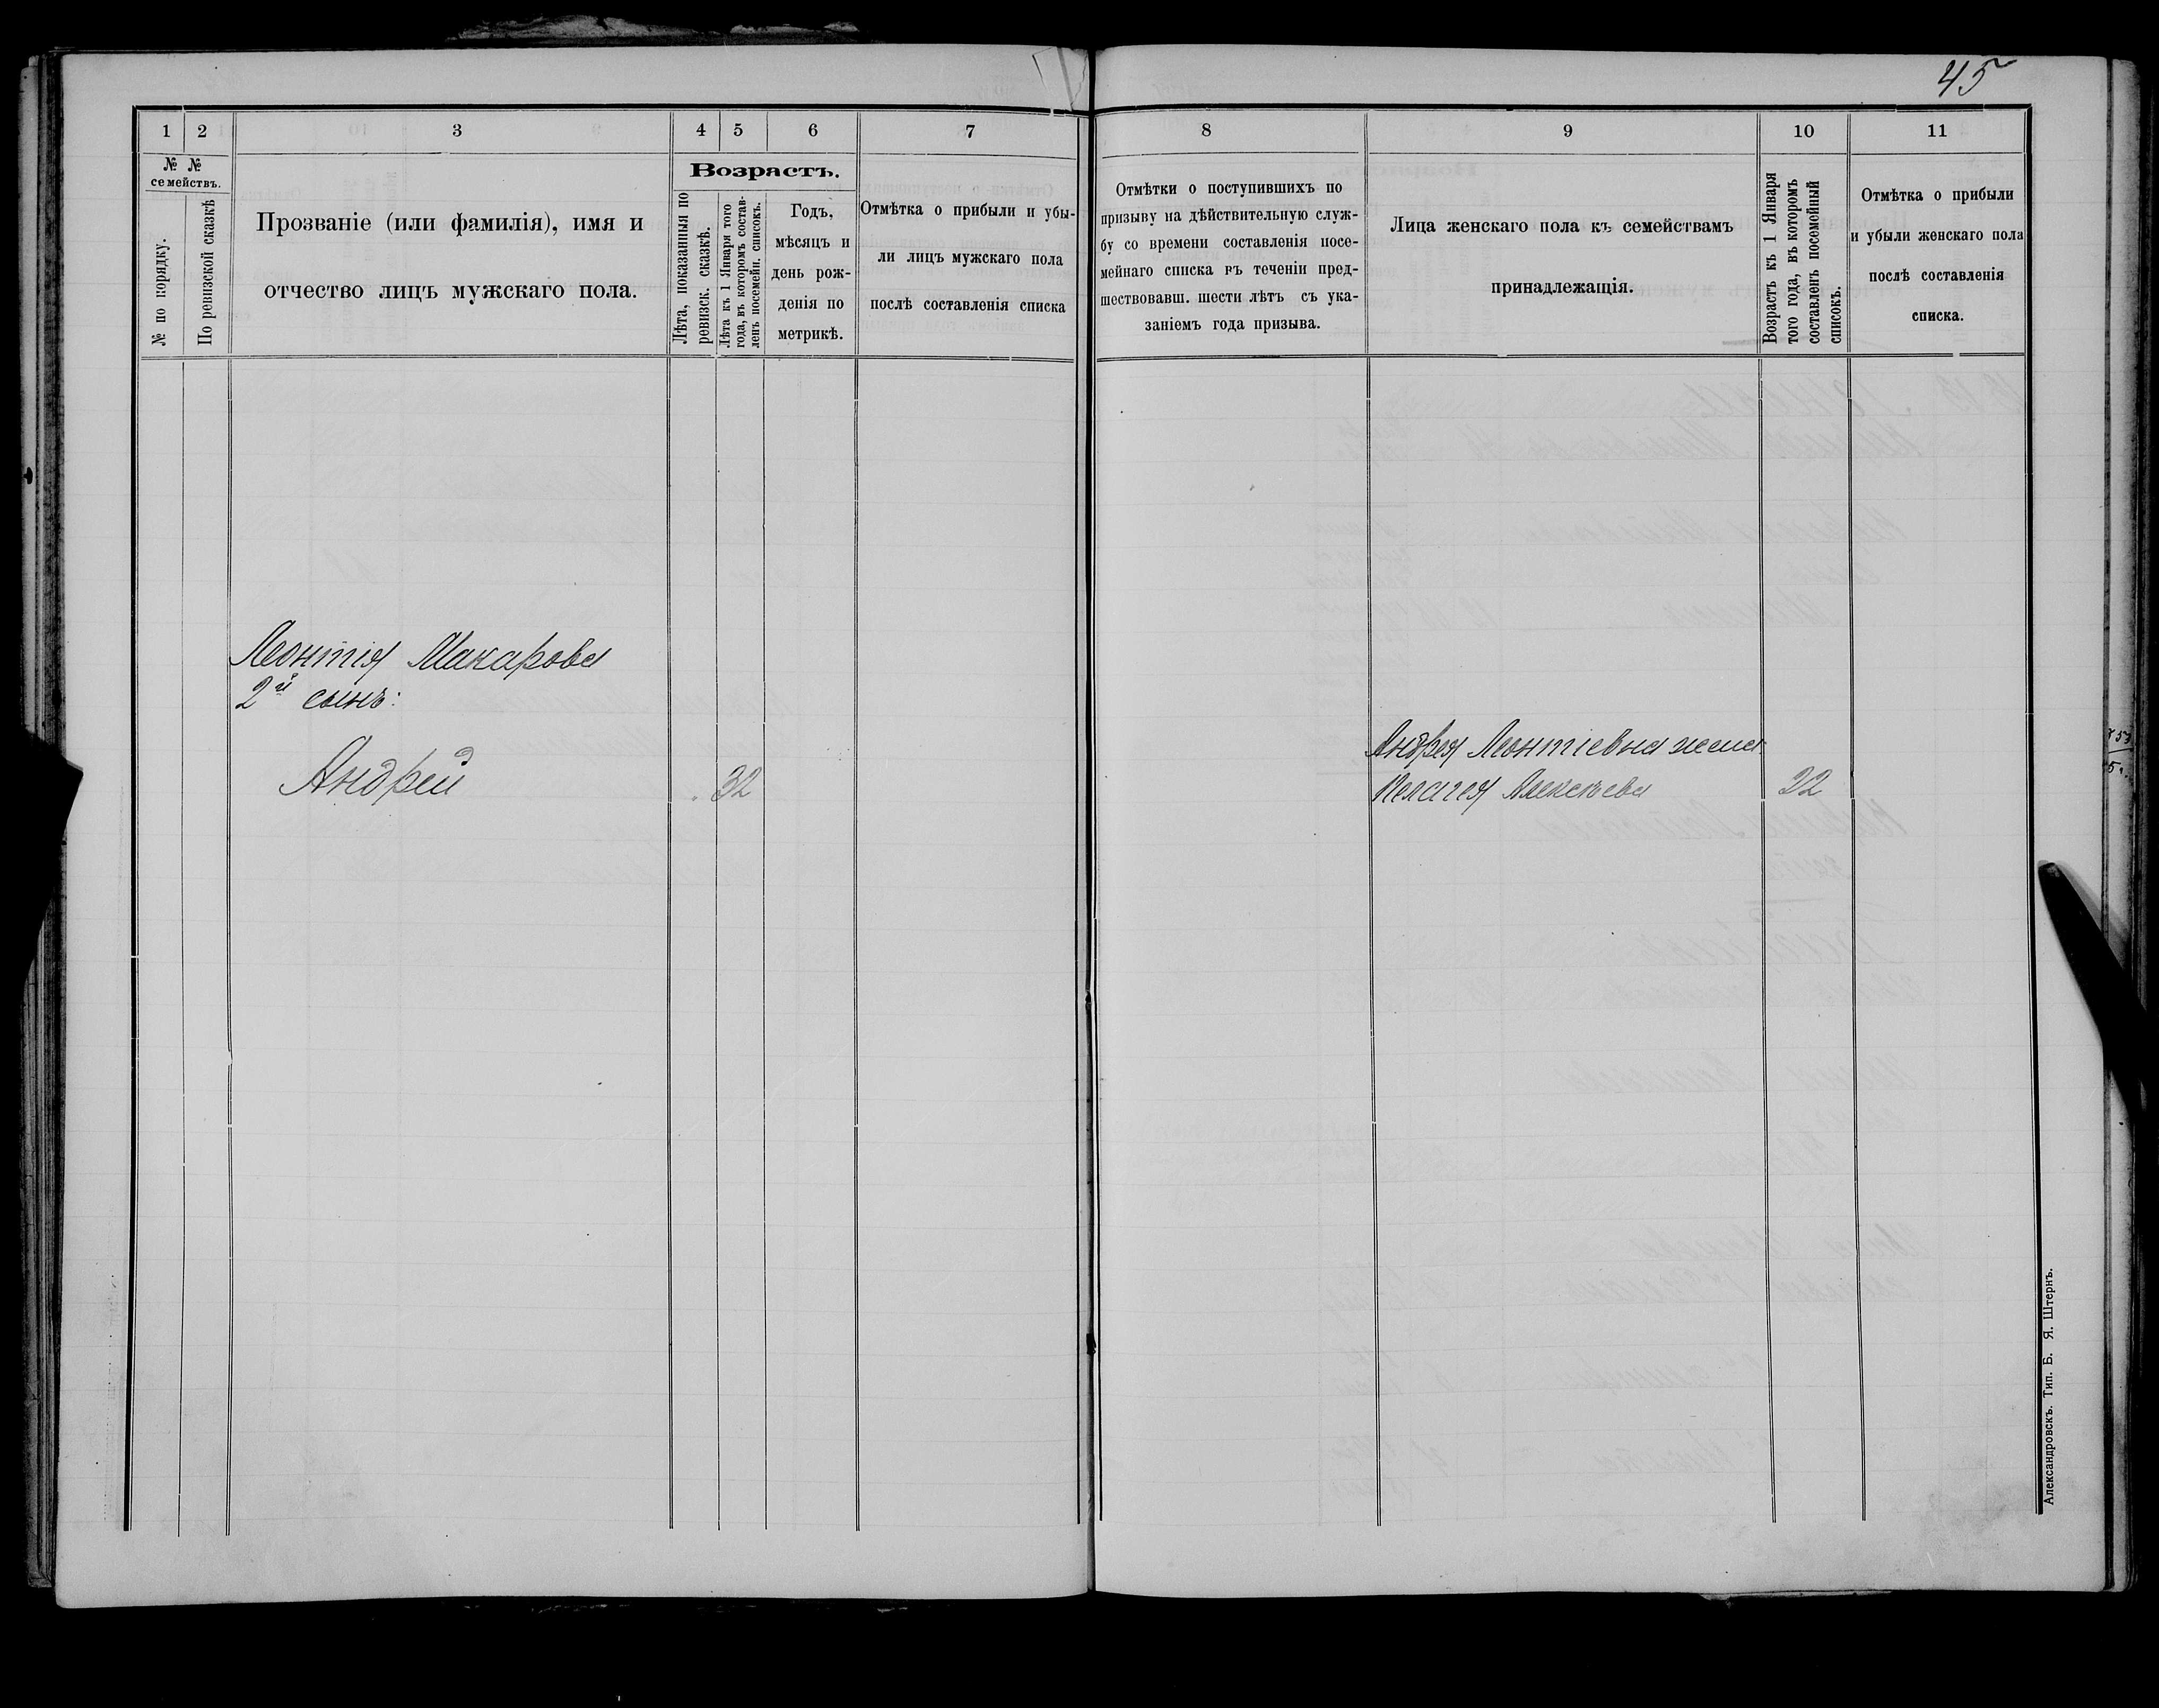 45
1 2 3 4 5 6 7
№ №
семействъ.
№ по порядку.
По ревизской сказкѣ
Прозваніе (или фамилія), имя и
отчество лицъ мужскаго пола.
Возрастъ.
Лѣта, показанныя по
ревизск. сказкѣ.
Лѣта къ 1 Января того
года, въ которомъ состав-
ленъ посемейн. списокъ.
Годъ,
мѣсяцъ и
день рож-
денія по
метрикѣ.
Отмѣтка о прибыли и убы-
ли лицъ мужскаго пола
послѣ составленія списка
Леонтія Макарова
2й сынъ:
Андрей 32
8 9 10 11
Отмѣтки о поступившихъ по
призыву на дѣйствительную служ-
бу со времени составленія посе-
мейнаго списка въ теченіи пред-
шествовавш. шести лѣтъ съ ука-
заніемъ года призыва.
Лица женскаго пола къ семействамъ
принадлежащія.
Возрастъ къ 1 Января
того года, въ которомъ
составленъ посемейный
списокъ.
Отмѣтка о прибыли
и убыли женскаго пола
послѣ составленія
списка.
Андрея Леонтіевна жена
Пелагея Алексѣева 22
Александровскъ. Тип. Б. Я. Штернъ.